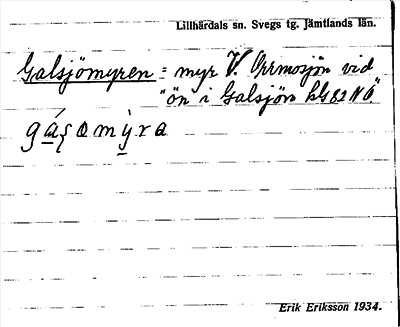 Lillhärdals sn. Svegs tg. Jämtlands län.
Galsjömyren = myr V. Orrmosjön vid
"ön" i Galsjön
Erik Eriksson 1934.